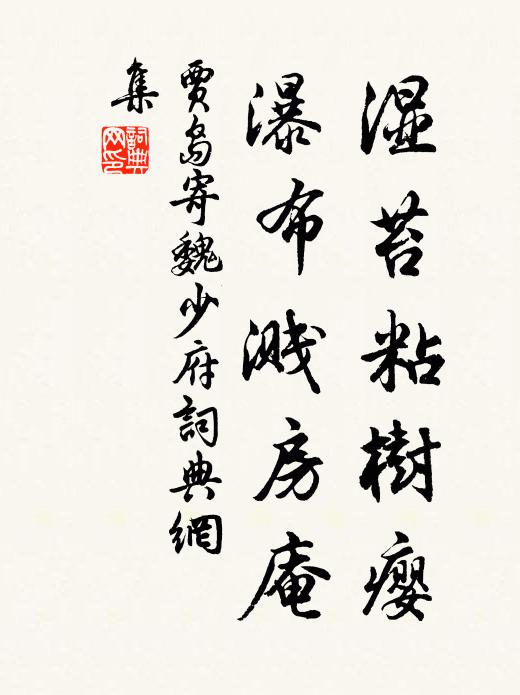 湿苔粘樹瘿
瀑布溅房庵
賈島寄魏少府詞典網
集
詞典
网印